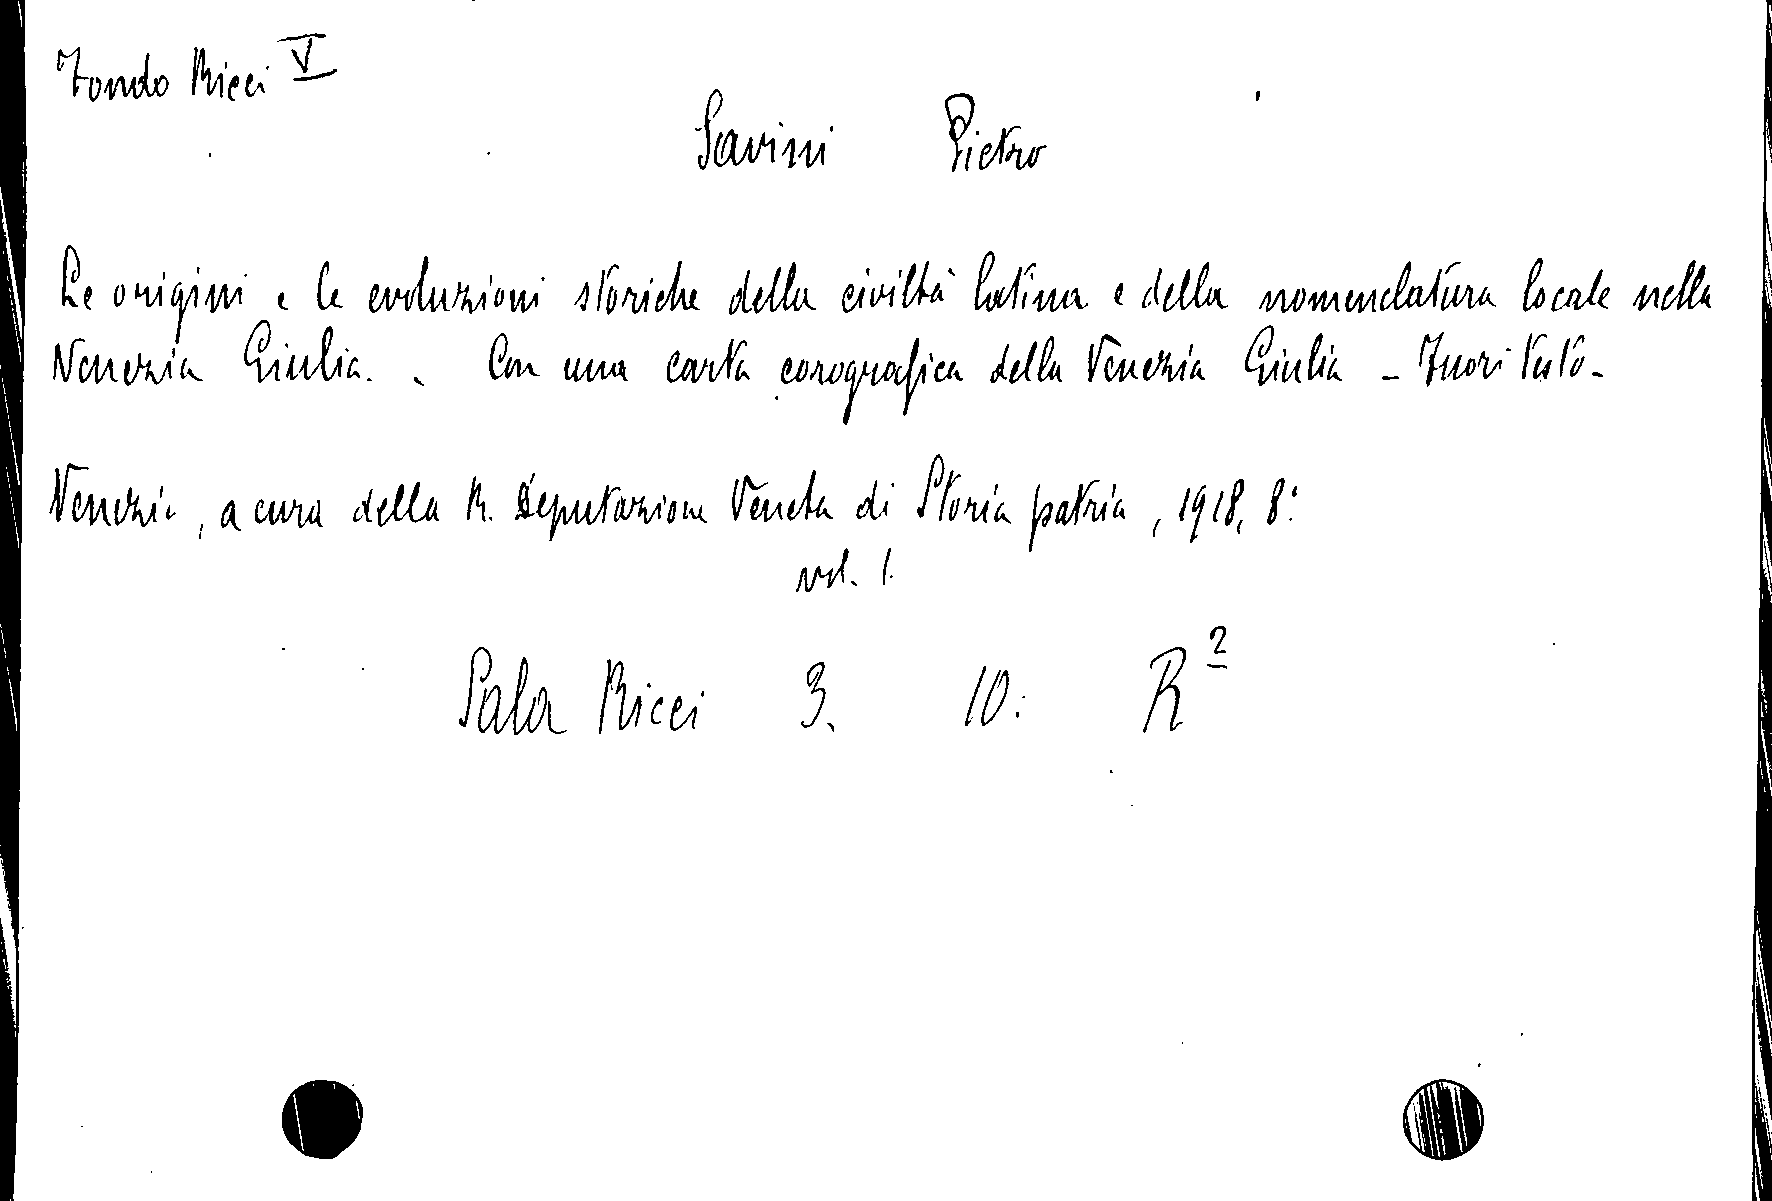 Fondo Ricci V
Savini Pietro
Le origini e le evoluzioni storiche della civiltà latina e della nomenclatura locale nella
Venezia Giulia. - Con una carta corografica della Venezia Giulia - Fuori testo -
Venezia, a cura della R. Deputazione Veneta di Storia patria, 1918, 8°
vol. 1.
Sala Ricci 3. 10. R²